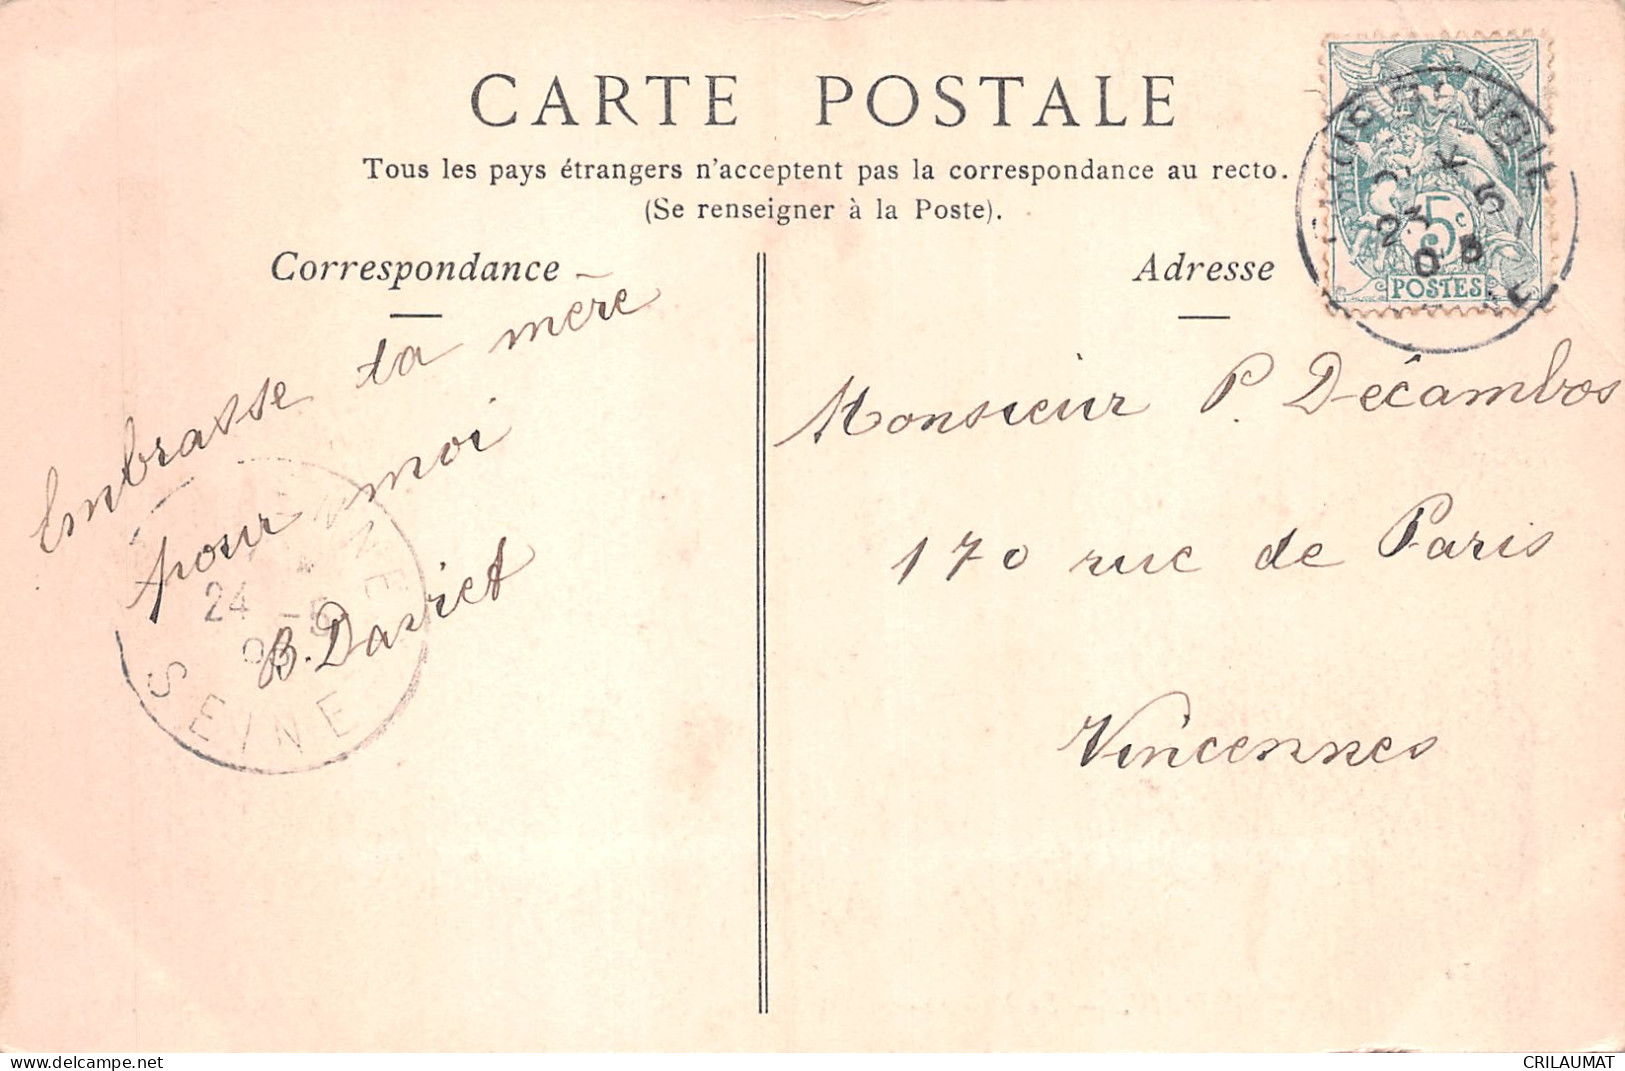 CARTE POSTALE
Tous les pays étrangers n'acceptent pas la correspondance au recto.
(Se renseigner à la Poste).
Correspondance
Adresse
5c
POSTES
23
5
05
Embrasse ta mère
pour moi
B. Daviet
24 -5
SEINE
Monsieur P. Décambos
170 rue de Paris
Vincennes
www.delcampe.net
CRILAUMAT